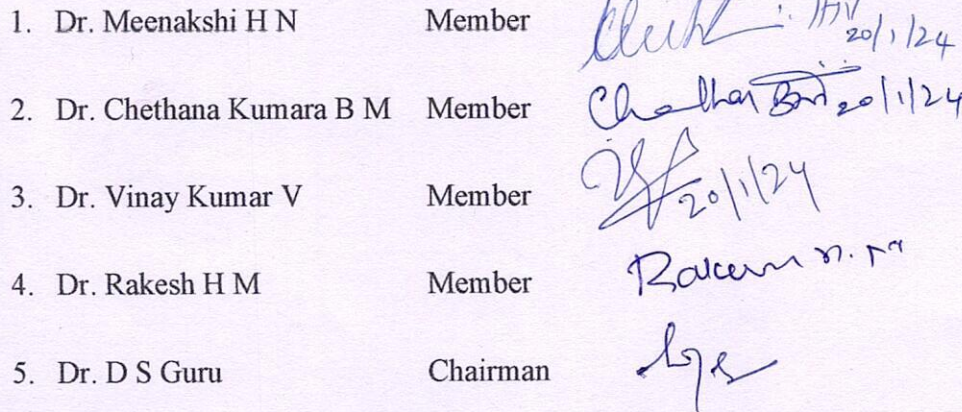 1. Dr. Meenakshi H N Member 20/1/24
2. Dr. Chethana Kumara B M Member 20/1/24
3. Dr. Vinay Kumar V Member 20/1/24
4. Dr. Rakesh H M Member
5. Dr. D S Guru Chairman